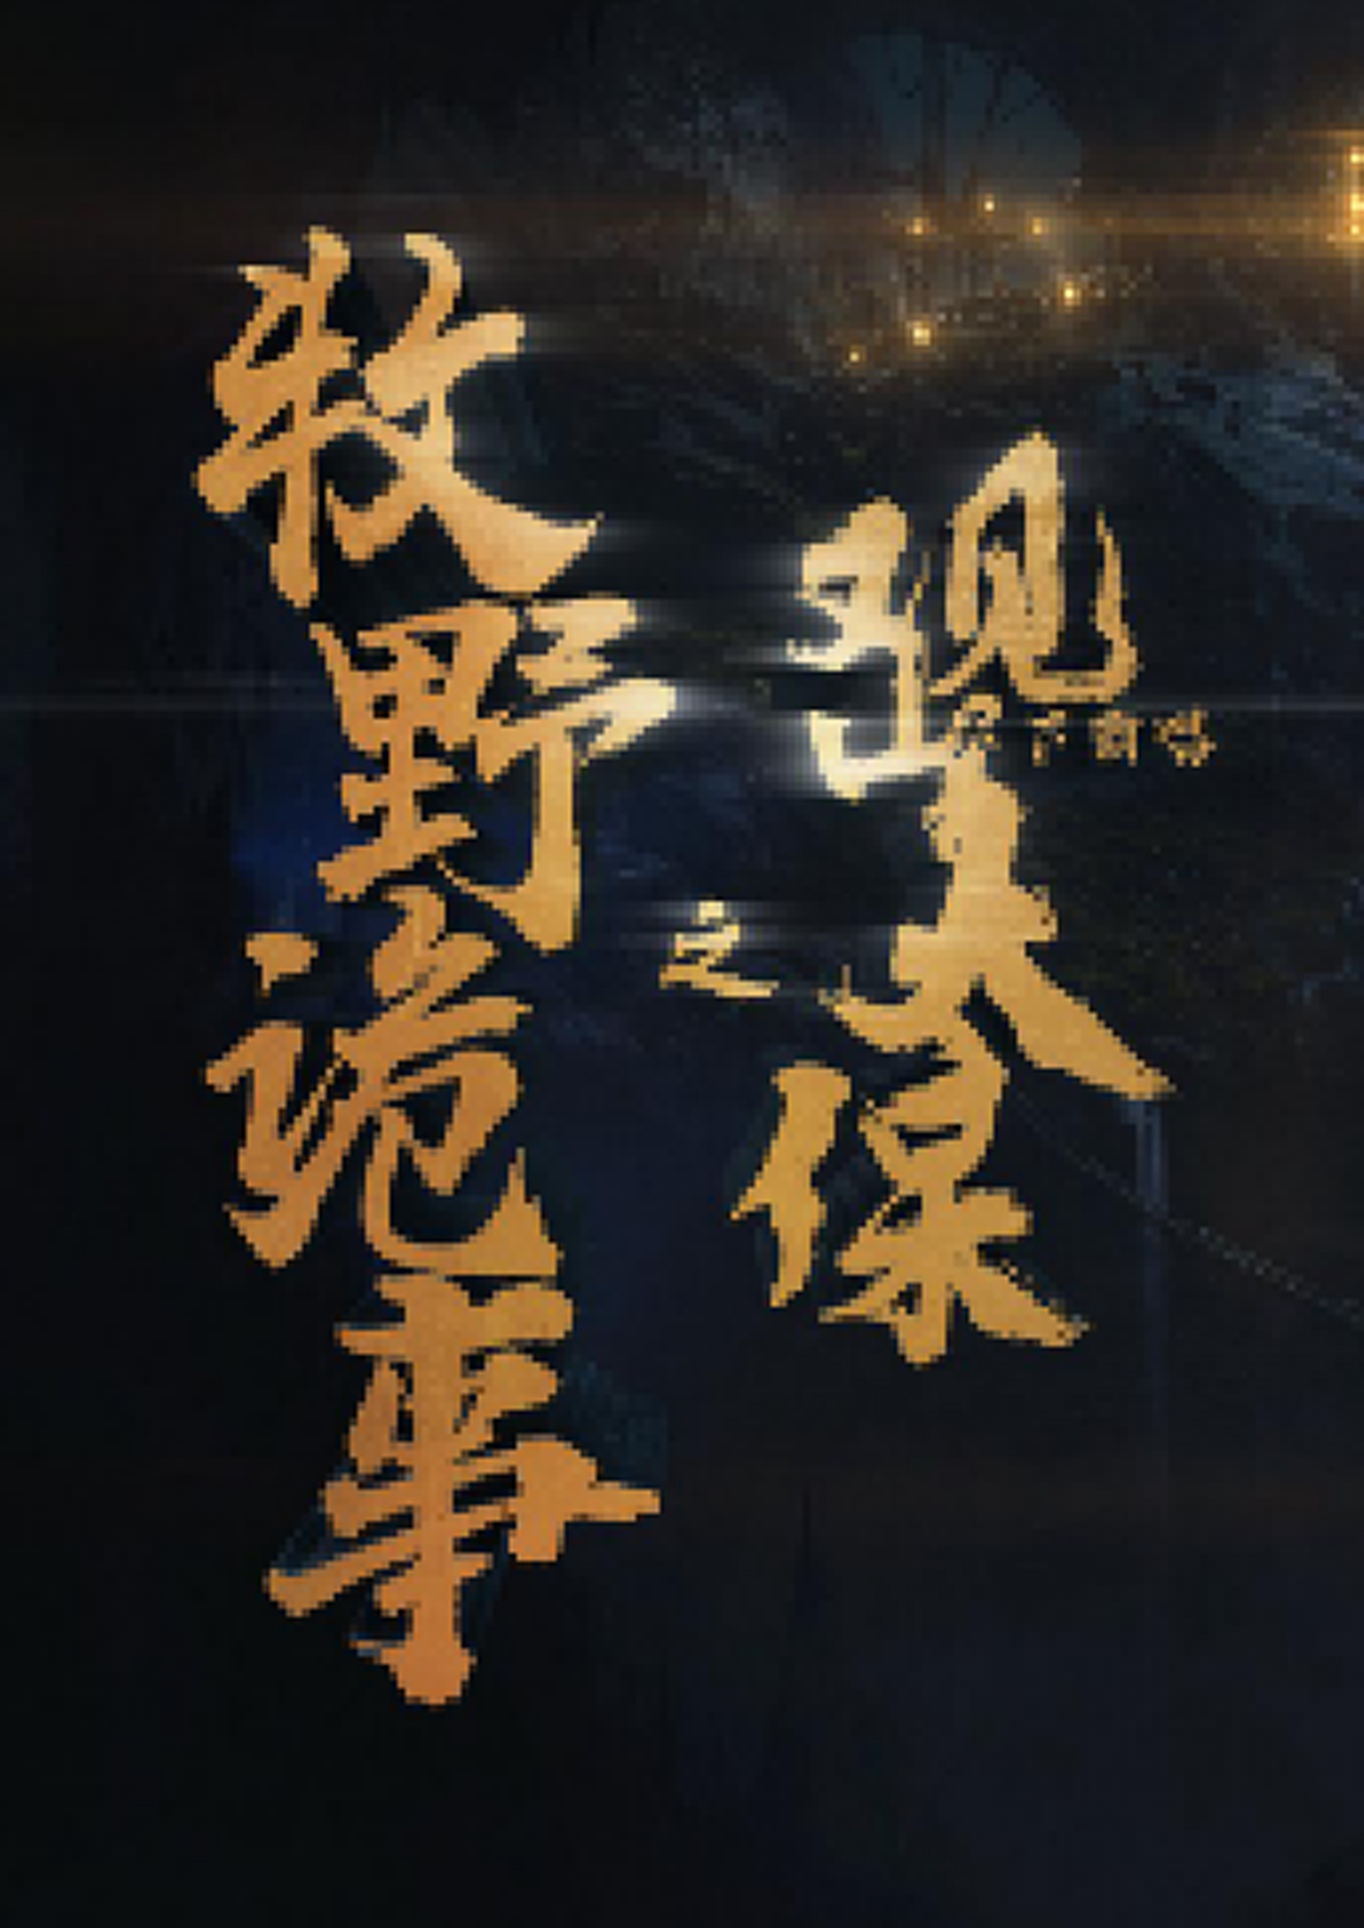 牧野诡事
之
观山太保